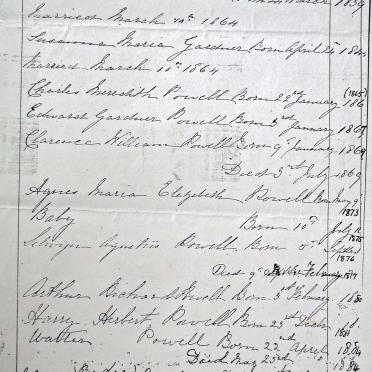 March 1839
Married March 10th 1864
Susanna Maria Gardner Born April 25 184
Married March 10th 1864
Charles Meredith Powell Born 28th January 186 (1865)
Edward Gardner Powell Born 3rd January 1867
Clarence William Powell Born 9th January 1869
Died 3rd July 1869
Agnes Maria Elizabeth Powell Born May 9 1873
Baby Born 10th July 1875
Selwyn Agustus Powell Born 5 1876
Died 9 February 1877
Arthur Richard Powell Born 5th February 1880
Harry Herbert Powell Born 23rd 1881
Walter Powell Born 22nd April 1884
Died May 23rd 1884